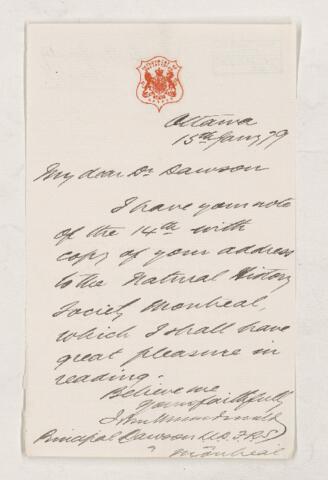 Ottawa
15th Jany 79
My dear Dr Dawson
I have your note
of the 14th with
copy of your address
to the Natural History
Society Montreal,
which I shall have
great pleasure in
reading.
Believe me
Yours faithfully
John A Macdonald
Principal Dawson LL.D. F.R.S
Montreal